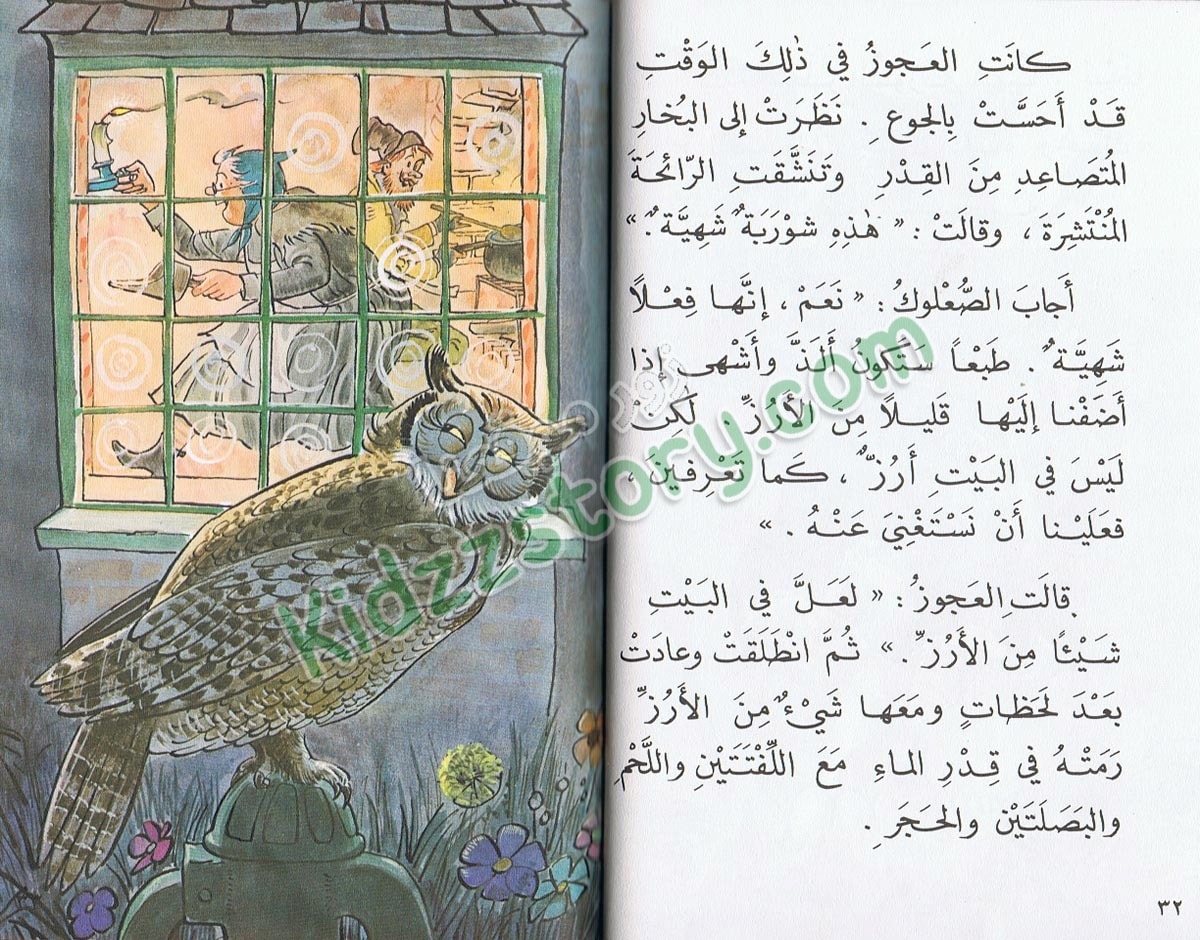 كانَتِ العَجوزُ في ذٰلِكَ الوَقْتِ
قَدْ أَحَسَّتْ بِالجوعِ . نَظَرَتْ إلى البُخارِ
المُتَصاعِدِ مِنَ القِدْرِ وتَنَشَّقَتِ الرّائحَةَ
المُنْتَشِرَةَ ، وقالَتْ : « هٰذِهِ شوْرَبَةٌ شَهِيَّةٌ . »
أَجابَ الصُّعْلوكُ : « نَعَمْ ، إنَّها فِعْلاً
شَهِيَّةٌ . طَبْعاً سَتَكونُ أَلَذَّ وأَشْهى إذا
أَضَفْنا إلَيْها قَليلاً مِنَ الأَرُزِّ . لٰكِنْ
لَيْسَ في البَيْتِ أَرُزٌّ ، كَما تَعْرِفينَ ،
فعَلَيْنا أَنْ نَسْتَغْنِيَ عَنْهُ . »
قالَتِ العَجوزُ : « لَعَلَّ في البَيْتِ
شَيْئاً مِنَ الأَرُزِّ . » ثُمَّ انْطَلَقَتْ وعادَتْ
بَعْدَ لَحَظاتٍ ومَعَها شَيْءٌ مِنَ الأَرُزِّ
رَمَتْهُ في قِدْرِ الماءِ مَعَ اللِّفْتَتَيْنِ واللَّحْمِ
والبَصَلَتَيْنِ والحَجَرِ .
٣٢
Kidzzstory.com